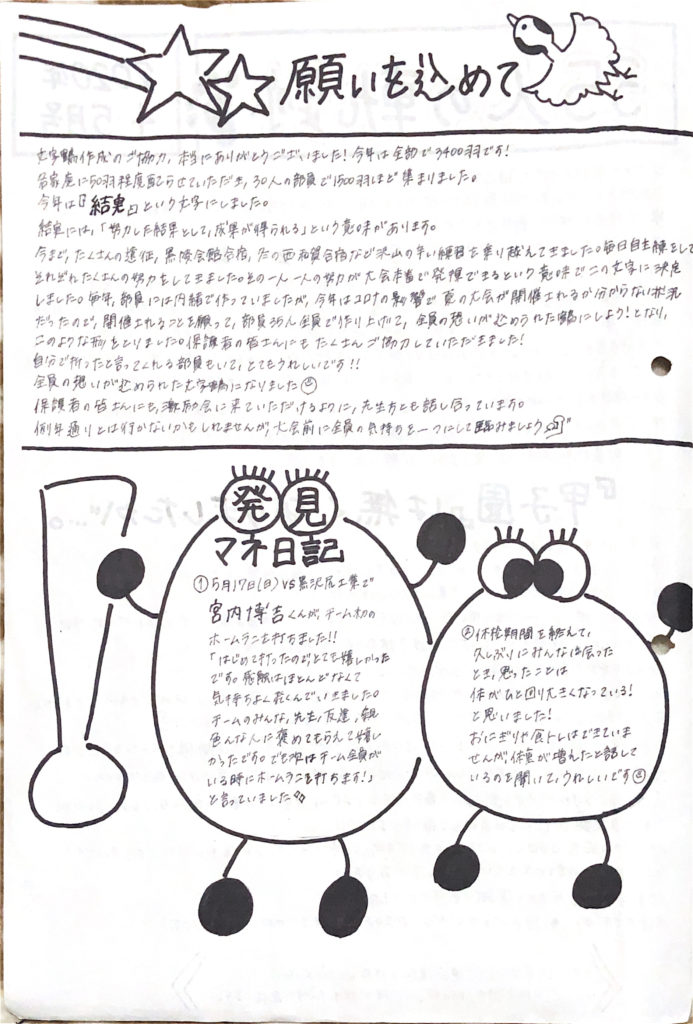 願いを込めて
文字鶴作成のご協力、本当にありがとうございました!今年は全部で3400羽です!
各家庭に50羽程度配らせていただき、30人の部員で1500羽ほど集まりました。
今年は『結実』という文字にしました。
結実には、「努力した結果として、成果が得られる」という意味があります。
今まで、たくさんの遠征、黒陵会館合宿、冬の西和賀合宿など沢山の辛い練習を乗り越えてきました。毎日自主練をして
それぞれたくさんの努力をしてきました。その一人一人の努力が大会本番で発揮できるという意味でこの文字に決定
しました。毎年、部員には内緒で作っていましたが、今年はコロナの影響で夏の大会が開催されるか分からない状況
だったので、開催されることを願って、部員35人全員で作り上げて、全員の想いが込められた鶴にしよう!となり、
このような形をとりました。保護者の皆さんにもたくさんご協力していただきました!
自分で折ったと言ってくれる部員もいて、とてもうれしいです!!
全員の想いが込められた文字鶴になりました
保護者の皆さんにも、激励会に来ていただけるように、先生方とも話し合っています。
例年通りとは行かないかもしれませんが、大会前に全員の気持ちを一つにして臨みましょう
発見
マネ日記
①5月17日(日)VS黒沢尻工業で
宮内博吉くんが、チーム初の
ホームランを打ちました!!
「はじめて打ったのでとても嬉しかった
です。感触はほとんどなくて
気持ちよく飛んでいきました。
チームのみんな、先生、友達、親
色んな人に褒めてもらえて嬉し
かったです。でも次はチーム全員が
いる時にホームランを打ちます!」
と言っていました
②休校期間を終えて、
久しぶりにみんなに会った
とき、思ったことは
体がひと回り大きくなっている!
と思いました!
おにぎりや食トレはできていま
せんが、体重が増えたと話して
いるのを聞いて、うれしいです